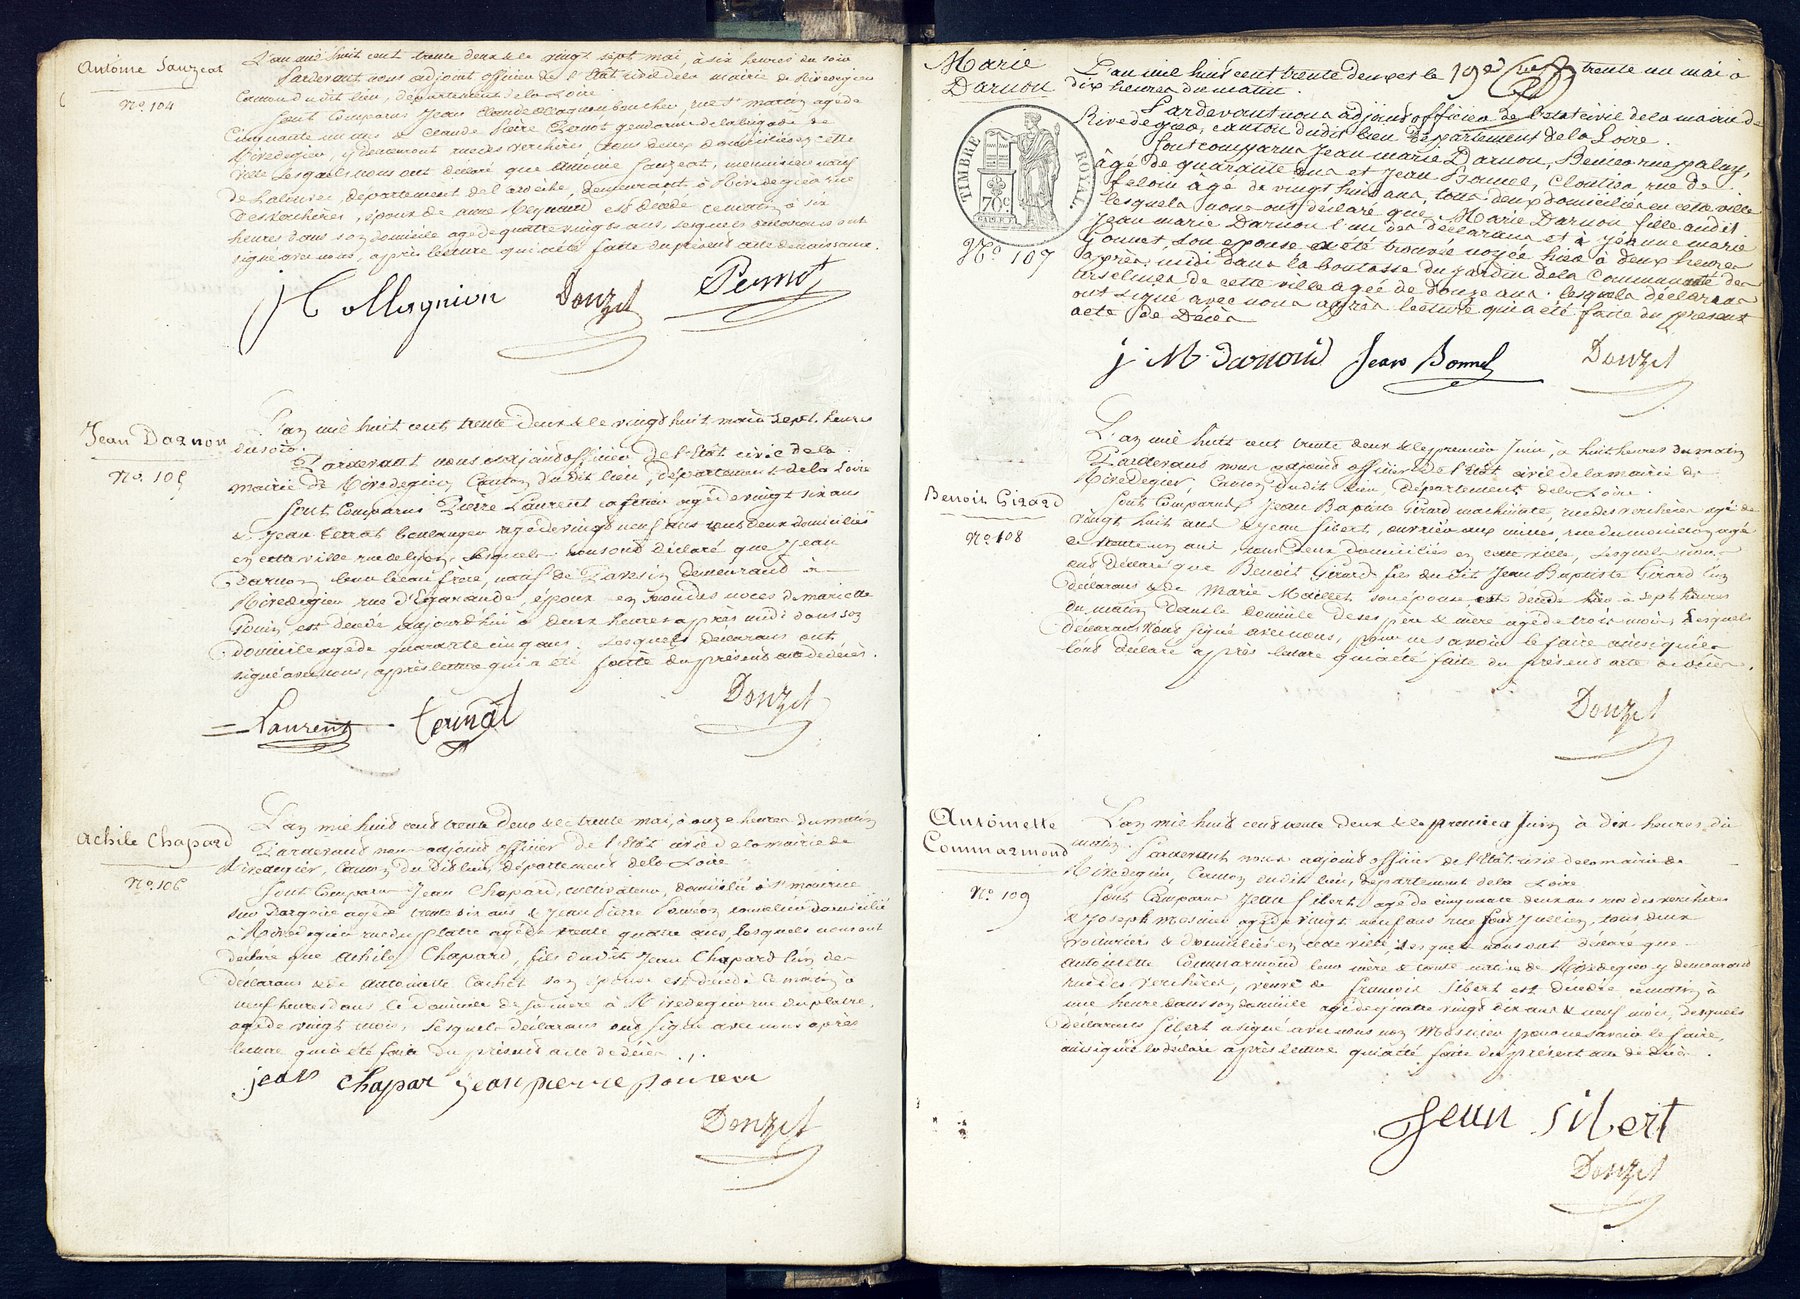 Antoine Sauzeat
Nº 104
L'an mil huit cent trente deux & le vingt sept mai, à six heures du soir
Pardevant nous adjoint officier de l'Etat civil de la mairie de Rivedegier
Canton dudit lieu, département de la Loire.
Sont Comparus Jean Claude boucher, rue St martin agé de
Cinquante un ans & Claude Pierre Pernot gendarme de la brigade de
Rivedegier, y demeurant rue des verchères, tous deux domiciliés en cette
ville Lesquels nous ont déclaré que Antoine Sauzeat, menuisier natif
de département de l'ardèche, demeurant à Rivedegier rue
Desvachères, époux de anne Reynaud est décédé ce matin à six
heures dans son domicile agé de quatre vingts ans, Lesquels déclarans ont
signé avec nous, après lecture qui a été faite du présent acte de naissance.
Donzel
Pernot
Jean Darnon
Nº 105
L'an mil huit cent trente deux & le vingt huit mai à sept heures
du soir.
Pardevant nous adjoint officier de l'Etat civil de la
mairie de Rivedegier Canton dudit lieu, département de la Loire
Sont Comparus Pierre Laurent agé de vingt six ans
& Jean Terrat boulanger agé de vingt neuf ans tous deux domiciliés
en cette ville rue de lyon, Lesquels nous ont déclaré que Jean
Darnon leur beau frère, natif de demeurant à
Rivedegier rue d'Egarande, époux en secondes noces de mariette
est décédé aujourd'hui à deux heures après midi dans son
domicile agé de quarante cinq ans. Lesquels déclarans ont
signé avec nous, après lecture qui a été faite du présent acte de décès.
Laurent
Donzel
Achile Chapard
Nº 106
L'an mil huit cent trente deux & le trente mai, à onze heures du matin
Pardevant nous adjoint officier de l'Etat civil de la mairie de
Rivedegier, Canton du dit lieu, département de la Loire
Sont Comparus Jean Chapard, cultivateur, domicilié à St maurice
sur Dargoire agé de trente six ans & Jean Pierre domicilié
à Rivedegier rue du platre agé de trente quatre ans, lesquels nous ont
déclaré que Achile Chapard, fils du dit Jean Chapard l'un des
déclarans & de Antoinette Cachet son épouse est décédé ce matin à
neuf heures dans le domicile de sa mère à Rivedegier rue du platre,
agé de vingt mois, Lesquels déclarans ont signé avec nous après
lecture qui a été faite du présent acte de décès.
jean chapar jean pierre
Donzel
Marie
Darnon
TIMBRE ROYAL.
70 c
Nº 107
L'an mil huit cent trente deux et le 19e trente un mai à
dix heures du matin.
Pardevant nous adjoint officier de l'etat civil de la mairie de
Rivedegier, canton dudit lieu département de la Loire.
Sont comparus Jean marie Darnon, rue paluy,
âgé de quarante ans et Jean Bonnel, Cloutier rue de
feloin agé de vingt huit ans, tous deux domiciliés en cette ville
lesquels nous ont déclaré que Marie Darnon fille audit
Jean marie Darnon l'un des déclarans et à Jeanne marie
Gonnet, son épouse a été trouvée noyée hier à deux heures
après midi dans la boutasse du jardin de la Communauté des
urselines de cette ville agée de douze ans. lesquels déclarans
ont signé avec nous après lecture qui a été faite du présent
acte de Décès
j. M. Darnond Jean Bonnel Donzel
Benoit Girard
Nº 108
L'an mil huit cent trente deux & le premier Juin, à huit heures du matin
Pardevant nous adjoint officier de l'Etat civil de la mairie de
Rivedegier Canton dudit lieu, département de la Loire.
Sont Comparus Jean Baptiste Girard machiniste, rue des verchères agé de
vingt huit ans & Jean Sibert, ouvrier aux mines, rue du agé
de trente un ans, tous deux domiciliés en cette ville, Lesquels nous
ont déclaré que Benoit Girard fils du dit Jean Baptiste Girard l'un
déclarans & de Marie Maillet, son épouse est décédé hier à sept heures
du matin dans le domicile de ses père & mère agé de trois mois, Lesquels
déclarans n'ont signé avec nous, pour ne savoir le faire ainsi qu'ils
l'ont déclaré après lecture qui a été faite du présent acte de décès.
Donzel
Antoinette
Commarmond
Nº 109
L'an mil huit cent trente deux & le premier Juin à dix heures du
matin. Pardevant nous adjoint officier de l'Etat civil de la mairie de
Rivedegier, Canton dudit lieu, département de la Loire
Sont Comparus Jean Sibert agé de cinquante deux ans rue des verchères
& Joseph Mesnier agé de vingt neuf ans rue Jullien, tous deux
voituriers & domiciliés en cette ville, Lesquels nous ont déclaré que
Antoinette Commarmond leur mère & tante native de Rivedegier y demeurant
rue des verchères, veuve de françois Sibert est décédée ce matin à
une heure dans son domicile agée de quatre vingt dix ans & neuf mois, desquels
déclarans Sibert a signé avec nous non Mesnier pour ne savoir le faire,
ainsi qu'il l'a déclaré après lecture qui a été faite du présent acte de décès.
Jean Sibert
Donzel